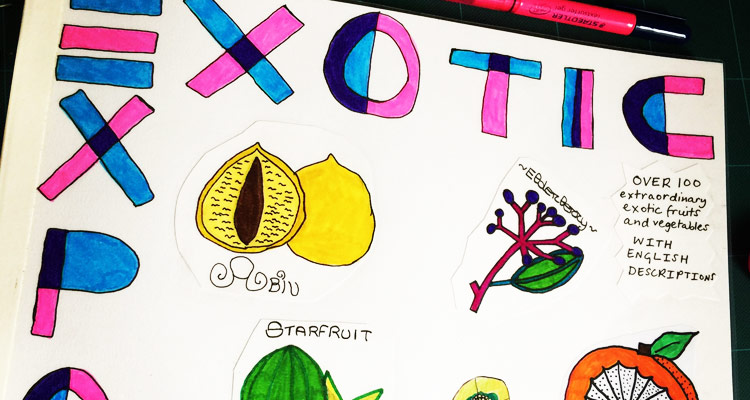 #STAEDTLER
textsurfer gel
EXOTIC
X
P
O
~Elderberry~
OVER 100
extraordinary
exotic fruits
and vegetables
WITH
ENGLISH
DESCRIPTIONS
ABIU
STARFRUIT